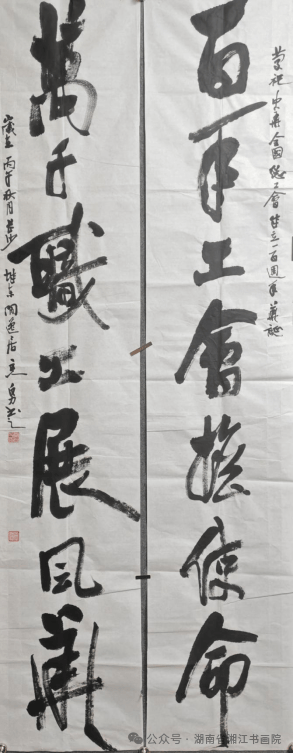 慶祝中華全國總工會成立一百周年華誕
百年工會擔使命
萬千職工展風華
歲在丙午秋月長沙
公众号 · 湖南省湘江书画院